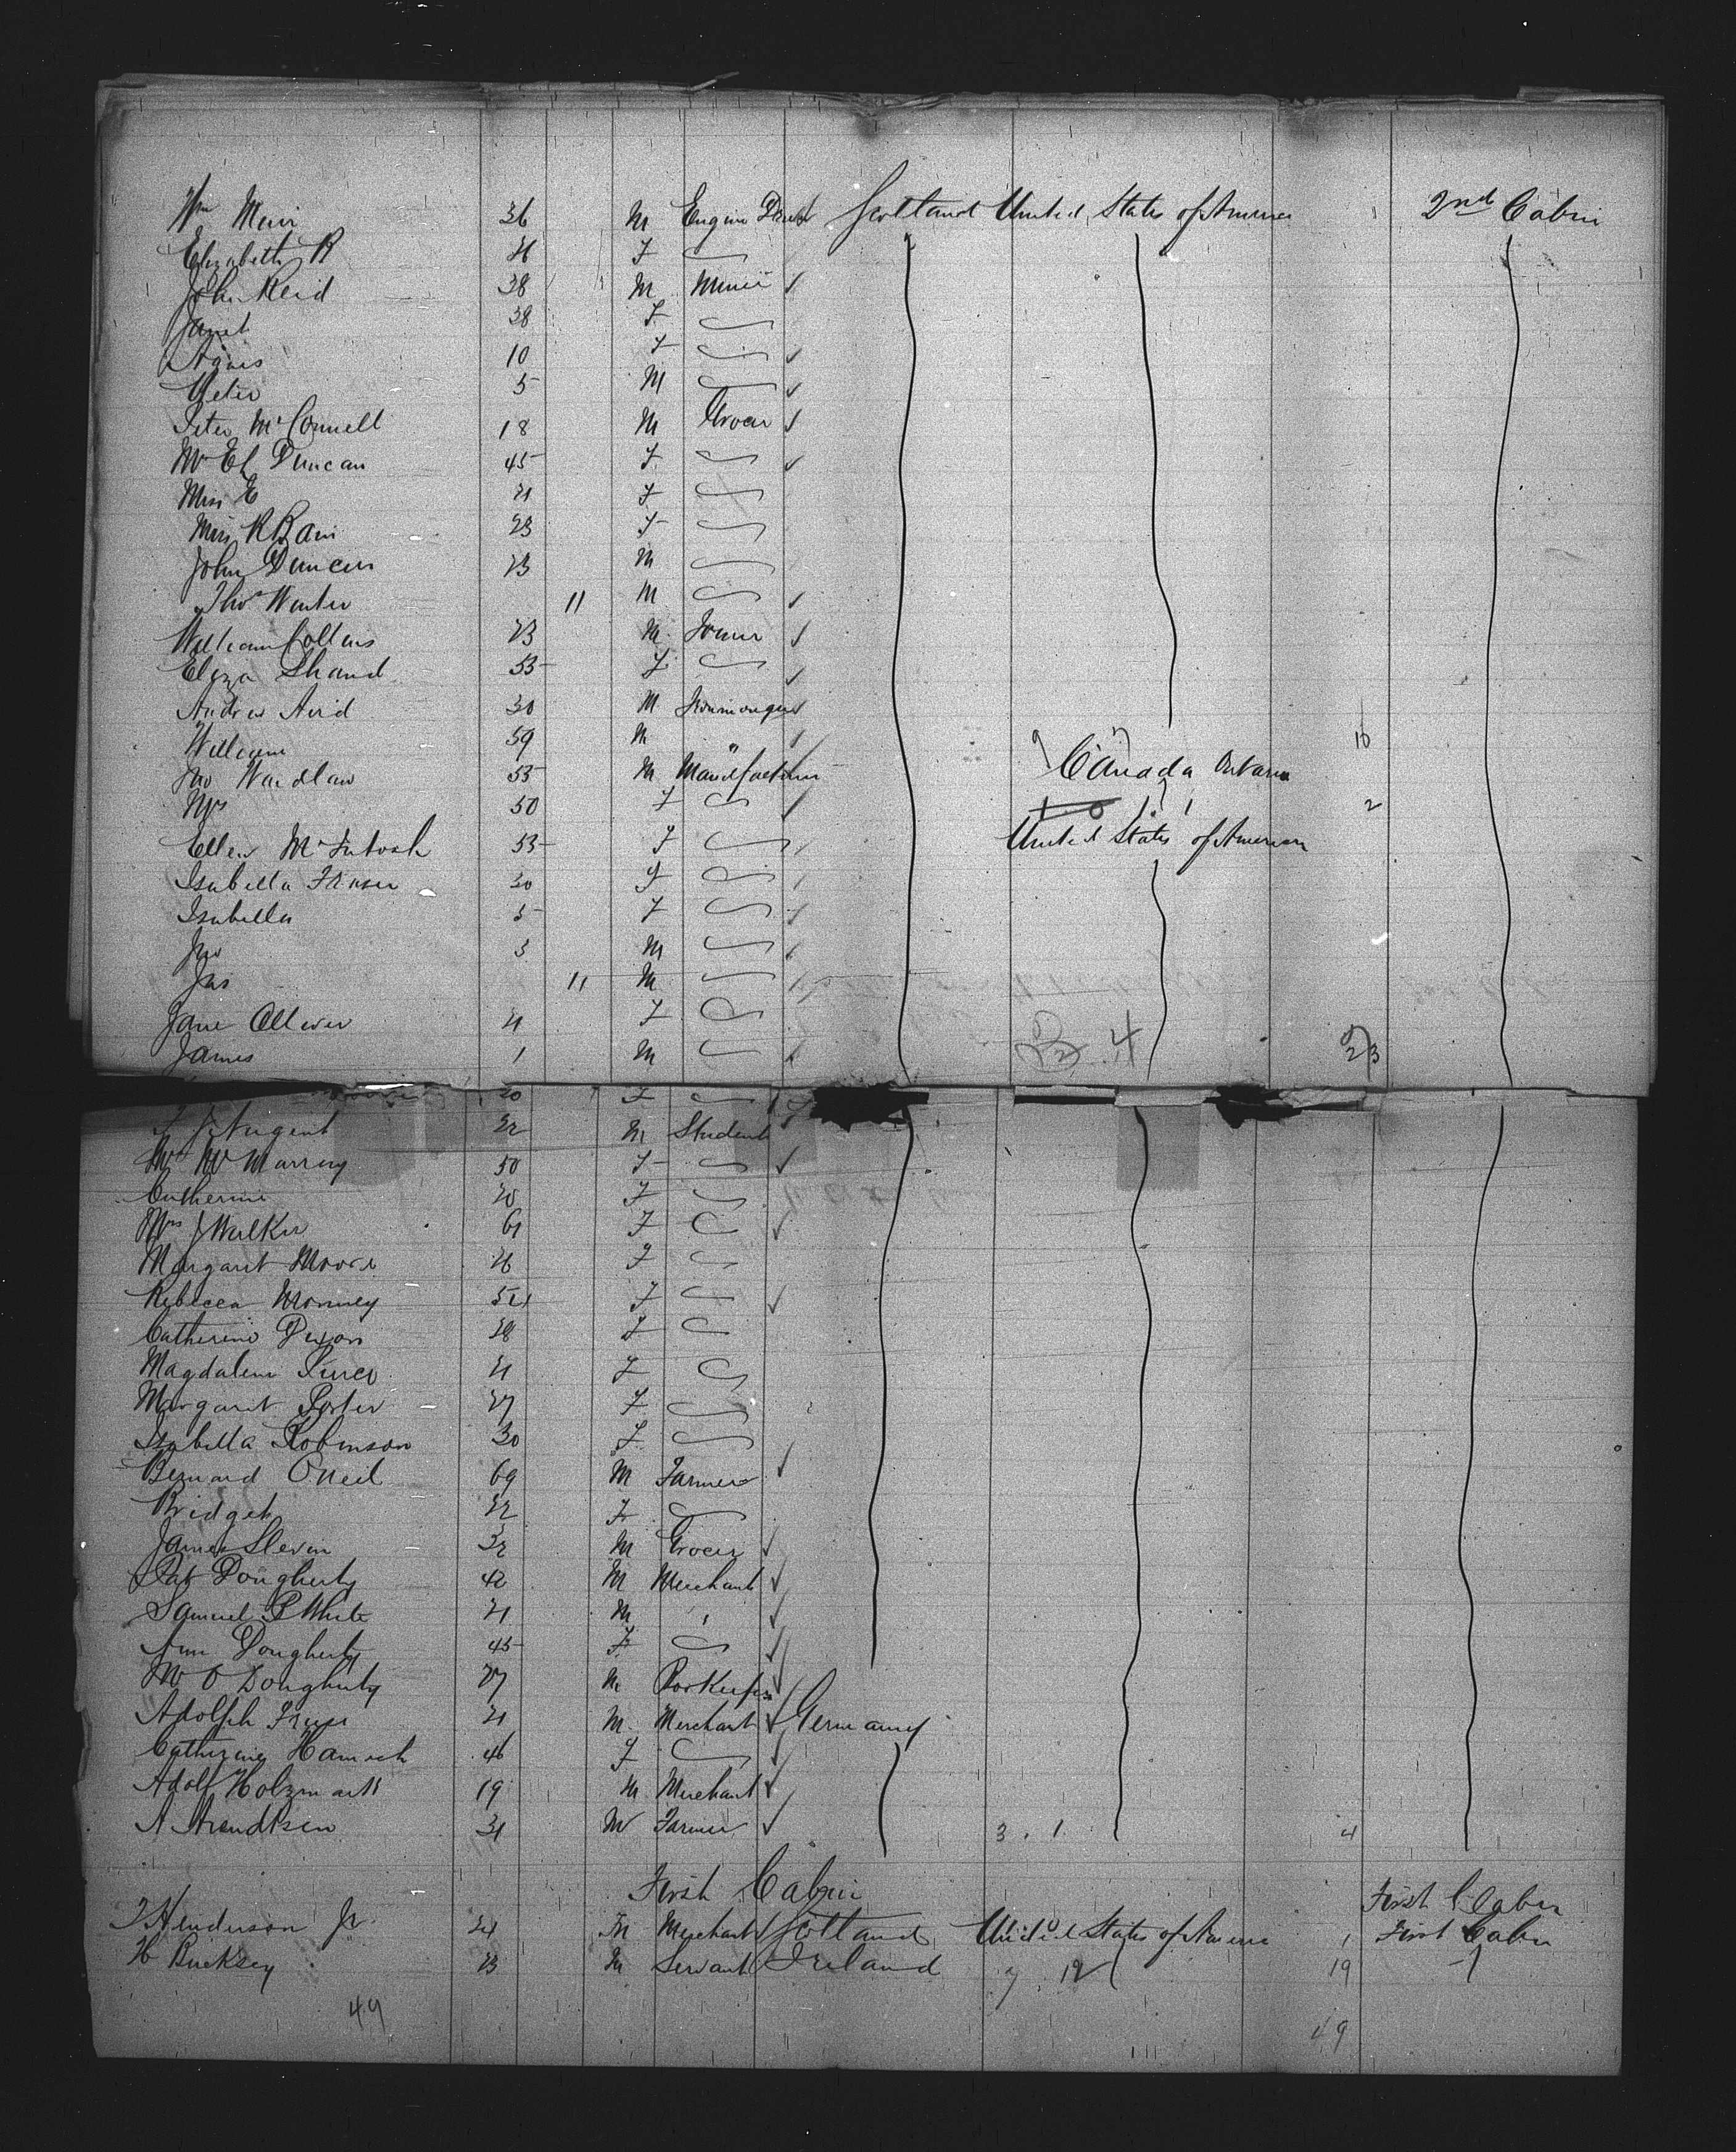 Wm Muir 36 M Engine Driver Scotland United States of America 2nd Cabin
Elizabeth R 26 F
John Reid 38 M Miner
Janet 38 F
Agnes 10 F
Peter 5 M
Peter McConnell 18 M Grocer
Mrs El Duncan 45 F
Miss E 21 F
Miss R Bain 23 F
John Duncan 23 M
Thos Winter 11 M
William Collins 23 M Joiner
Eliza Shand 53 F
Andrew Aird 30 M Ironmonger
William 59 M 10
Jno Wardlaw 53 M Manufacturer Canada Ontario
Mrs 50 F 2
Ellen McIntosh 53 F United States of America
Isabella Fraser 30 F
Isabella 5 F
Jno 3 M
Jas 11 M
Jane Oliver 21 F
James 1 M 4 23
20 F
Nugent 22 M Student
Mrs W Murray 50 F
Catherine 20 F
Mrs J Walker 61 F
Margaret Moore 26 F
Rebecca 54 F
Catherine Dixon 28 F
Magdalene 21 F
Margaret Porter 27 F
Isabella Robinson 30 F
Bernard ONeil 69 M Farmer
Bridget 22 F
James Slevin 32 M Grocer
Pat Dougherty 42 M Merchant
Samuel P White 21 M "
Ann Dougherty 45 F
W O Dougherty 27 M
Adolph 21 M Merchant Germany
Catherine 46 F
Adolf Holzmark 19 M Merchant
A Arendtsen 31 M Farmer 3 . 1 4
First Cabin
First Cabin
T Henderson Jr. 24 M Merchant Scotland United States of America 1 First Cabin
H Bucksey 23 M Servant Ireland 7 12 19
49
49